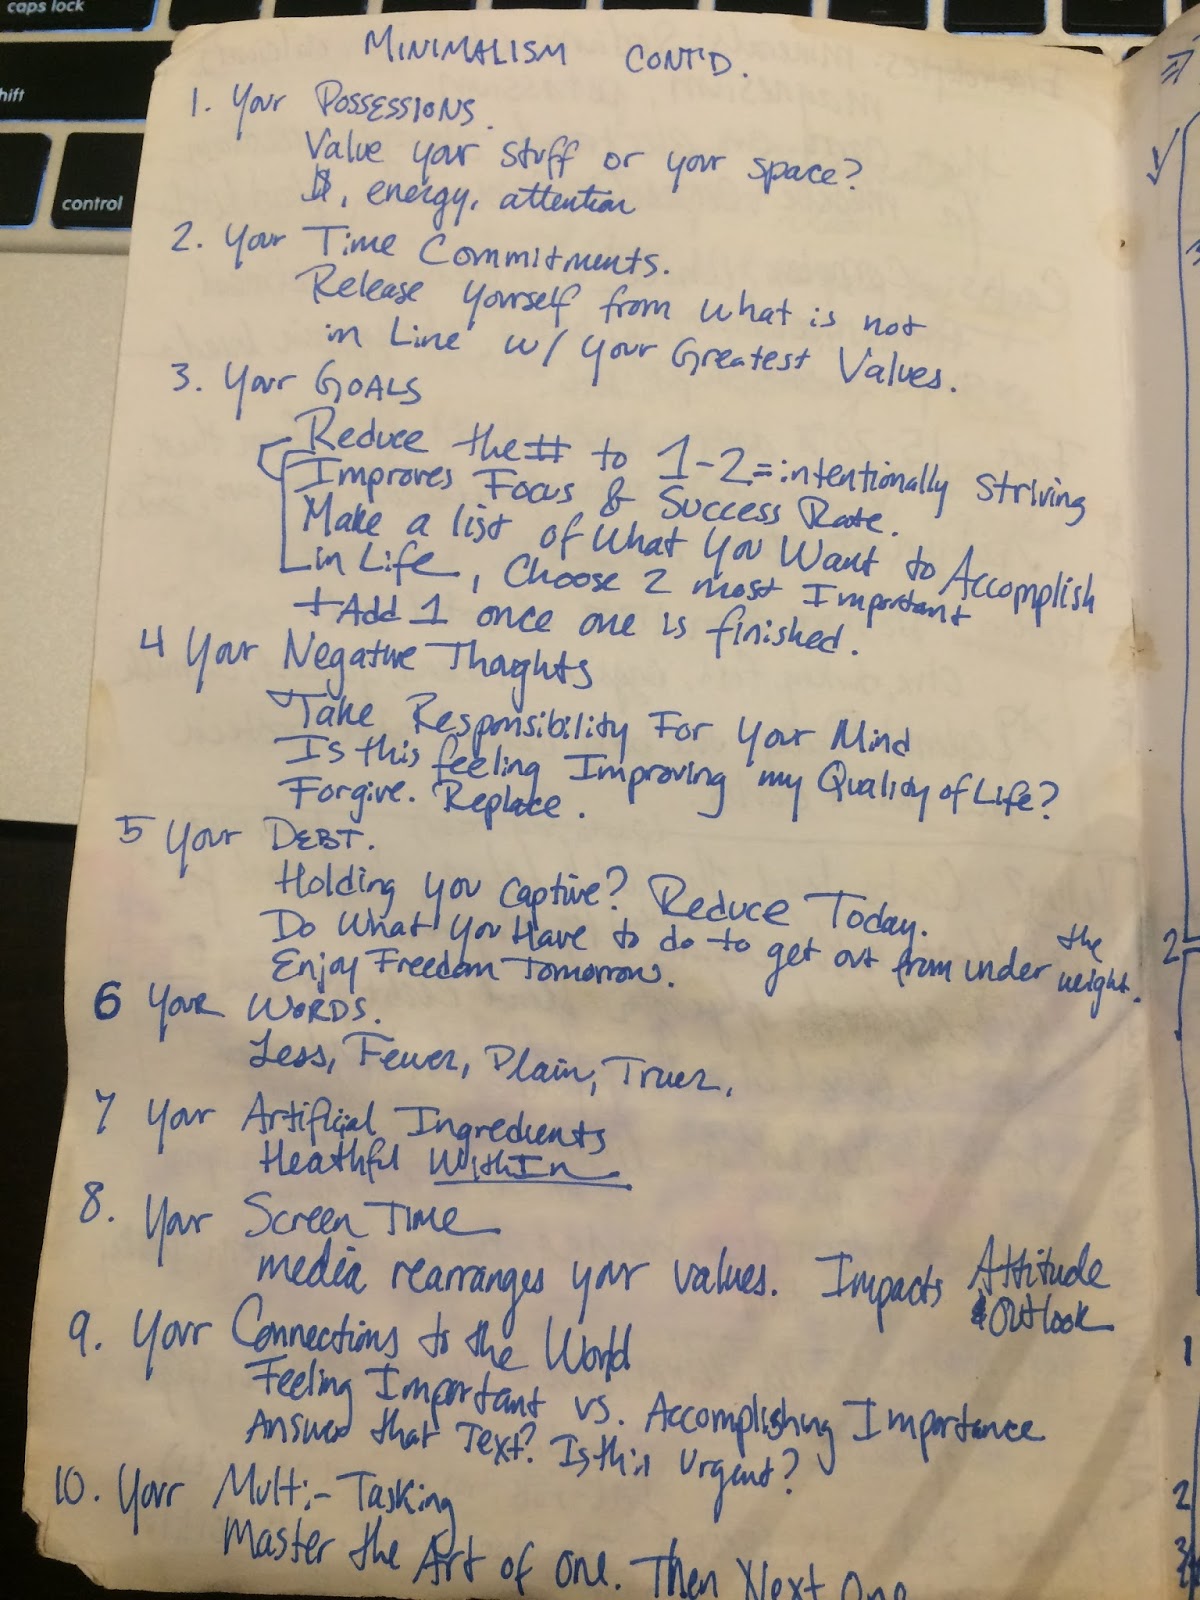 caps lock
shift
control
MINIMALISM CONT'D.
1. Your POSSESSIONS.
Value your stuff or your space?
$, energy, attention
2. Your Time Commitments.
Release yourself from what is not
in Line w/ your Greatest Values.
3. Your GOALS
Reduce the # to 1-2 = intentionally striving
Improves Focus & Success Rate.
Make a list of What You Want to Accomplish
in Life, Choose 2 most Important
+Add 1 once one is finished.
4 Your Negative Thoghts
Take Responsibility For Your Mind
Is this feeling Improving my Quality of Life?
Forgive. Replace.
5 Your DEBT.
Holding you captive? Reduce Today.
Do What You Have to do to get out from under the weight.
Enjoy Freedom Tomorrow.
6 Your WORDS.
Less, Fewer, Plain, Truer.
7 Your Artificial Ingredients
Heathful WithIn
8. Your Screen Time
media rearranges your values. Impacts Attitude
& Outlook
9. Your Connections to the World
Feeling Important vs. Accomplishing Importance
Answer that Text? Is this Urgent?
10. Your Multi-Tasking
Master the Art of One. Then Next One
2
1
2
3